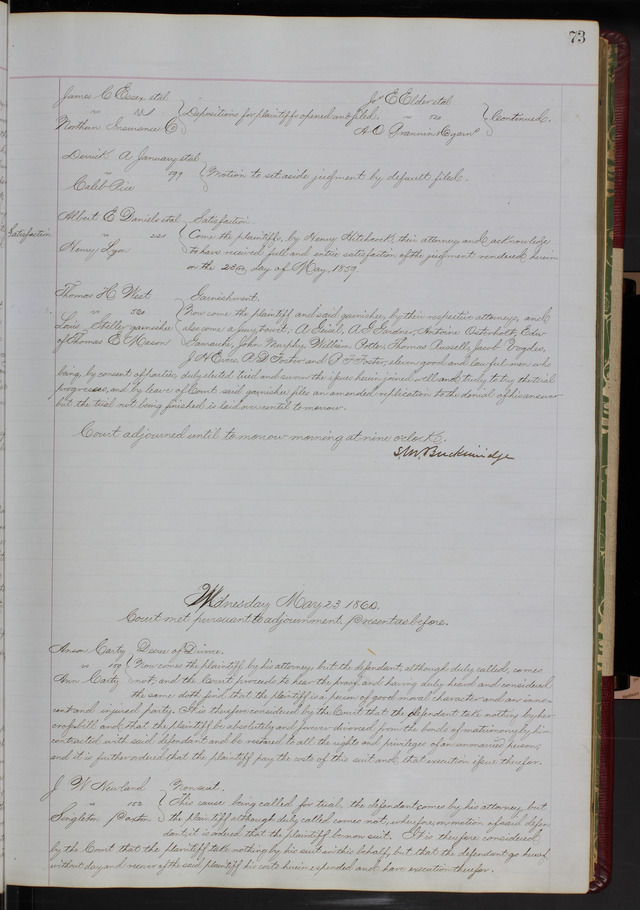 73
James C Essex etal
" vs
Northern Insurance Co
Depositions for plaintiffs opened and filed.
Jno E Elder etal
" 520
A D Prannin Again
Continued.
Derrick A January etal
" 199
Caleb Rice
Motion to set aside judgment by default filed.
Satisfaction
Albert E Daniels etal
" 222
Henry Lyon
Satisfaction.
Come the plaintiffs, by Henry Hitchcock, their attorney and acknowledge
to have received full and entire satisfaction of the judgment rendered herein
on the 23rd day of May, 1859.
Thomas H West
" 520
Louis garnishee
of Thomas E Mason
Garnishment.
Now come the plaintiff and said garnishee, by their respective attorneys, and
also come a jury, towit: A Geisel, A G Gardner, Antoine Osterholt, Eder
Gamache, John Murphy, William Potter, Thomas Russell, Jacob Trogden,
J H Evers, A D Foster and P F Foster, eleven good and lawful men who
being, by consent of parties, duly elected tried and sworn the issues herein joined well and truly to try the trial
progresses, and by leave of Court said garnishee files an amended replication to the denial of his answer
but the trial not being finished is laid over until tomorrow.
Court adjourned until tomorrow morning at nine o'clock.
S. M. Breckinridge
Wednesday May 23 1860.
Court met pursuant to adjournment. Present as before.
Anson Carty
" 109
Ann Carty
Decree of Divorce.
Now comes the plaintiff by his attorney, but the defendant, although duly called, comes
not; and the Court proceeds to hear the proof, and having duly heard and considered
the same doth find that the plaintiff is a person of good moral character and an inno-
cent and injured party. It is therefore considered by the Court that the defendant take nothing by her
crossbill and that the plaintiff be absolutely and forever divorced from the bonds of matrimony by him
contracted with said defendant and be restored to all the rights and privileges of an unmarried person;
and it is further ordered that the plaintiff pay the cost of this suit and that execution issue therefor.
J W Newland
" 152
Singleton Paxton
Nonsuit.
This cause being called for trial, the defendant comes by his attorney, but
the plaintiff although duly called comes not; wherefore, on motion of said defen-
dant, it is ordered that the plaintiff be nonsuit. It is therefore considered
by the Court that the plaintiff take nothing by his suit in this behalf, but that the defendant go hereof
without day and recover of the said plaintiff his costs herein expended and have execution therefor.